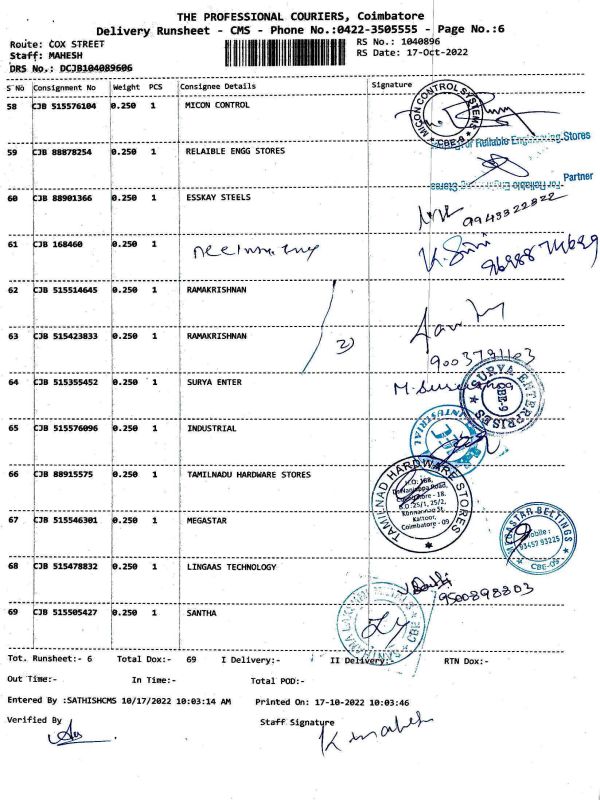 THE PROFESSIONAL COURIERS, Coimbatore
Delivery Runsheet - CMS - Phone No.:0422-3505555 - Page No.:6
Route: COX STREET RS No.: 1040896
Staff: MAHESH RS Date: 17-Oct-2022
DRS No.: DCJB104089606
S No Consignment No Weight PCS Consignee Details Signature
58 CJB 515576104 0.250 1 MICON CONTROL
MICON CONTROL SYSTEMS
CBE-9
59 CJB 88878254 0.250 1 RELAIBLE ENGG STORES
For Reliable Engineering Stores
Partner
For Reliable Engineering Stores
60 CJB 88901366 0.250 1 ESSKAY STEELS
9943322822
61 CJB 168460 0.250 1
K. Sini
62 CJB 515514645 0.250 1 RAMAKRISHNAN
63 CJB 515423833 0.250 1 RAMAKRISHNAN 2)
64 CJB 515355452 0.250 1 SURYA ENTER
SURYA ENTERPRISES
CBE-9
65 CJB 515576096 0.250 1 INDUSTRIAL
INDUSTRIAL
66 CJB 88915575 0.250 1 TAMILNADU HARDWARE STORES
TAMILNAD HARDWARE STORES
H.O: 168,
Coimbatore - 18.
B.O: 25/1, 25/2,
Kattoor,
Coimbatore - 09
67 CJB 515546301 0.250 1 MEGASTAR
MEGASTAR BELTINGS
Mobile :
93457 93225
CBE-09
68 CJB 515478832 0.250 1 LINGAAS TECHNOLOGY
9500898803
69 CJB 515505427 0.250 1 SANTHA
CBE
Tot. Runsheet:- 6 Total Dox:- 69 I Delivery:- II Delivery:- RTN Dox:-
Out Time:- In Time:- Total POD:-
Entered By :SATHISHCMS 10/17/2022 10:03:14 AM Printed On: 17-10-2022 10:03:46
Verified By Staff Signature
K mahesh